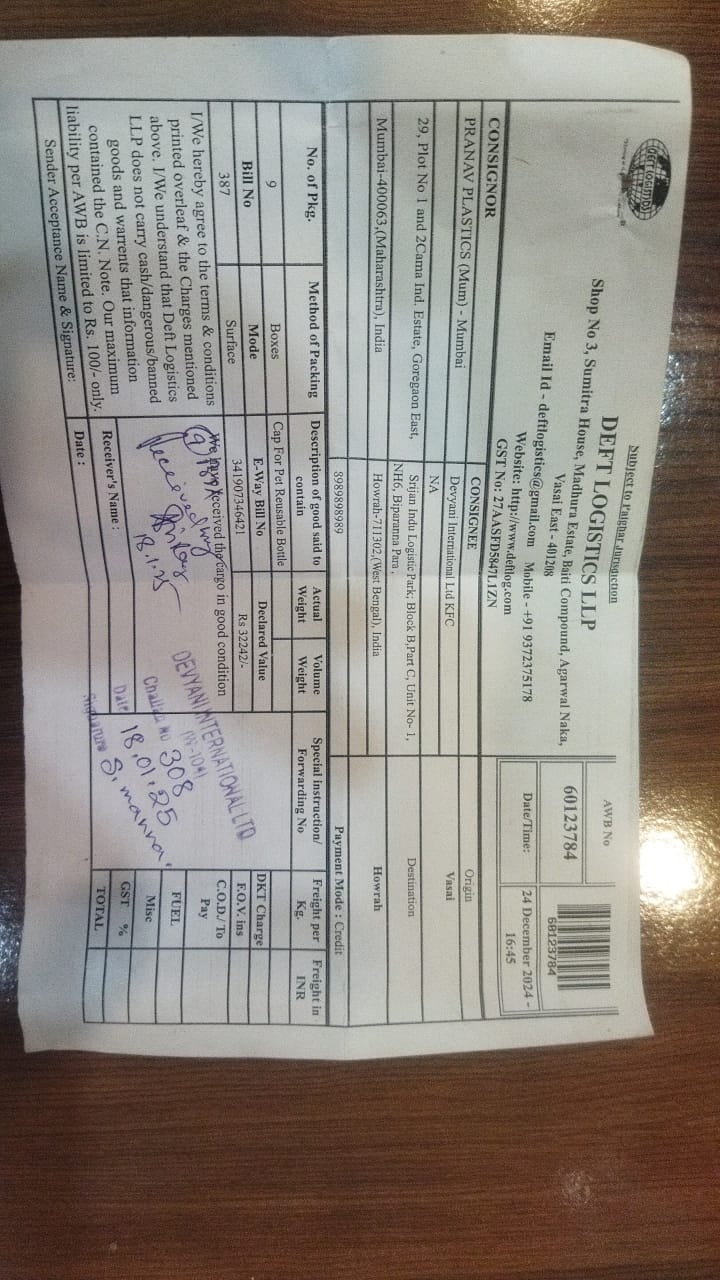 Subject to Palghar Jurisdiction
DEFT LOGISTICS LLP
Shop No 3, Sumitra House, Madhura Estate, Baiti Compound, Agarwal Naka,
Vasai East - 401208
Email Id - deftlogistics@gmail.com Mobile - +91 9372375178
Website: http://www.deftlog.com
GST No: 27AASFD5847L1ZN
AWB No
60123784
60123784
Date/Time:
24 December 2024 -
16:45
CONSIGNOR
PRANAV PLASTICS (Mum) - Mumbai
29, Plot No 1 and 2Cama Ind. Estate, Goregaon East,
Mumbai-400063,(Maharashtra), India
CONSIGNEE
Devyani International Ltd KFC
NA
Srijan Indu Logistic Park; Block B,Part C, Unit No- 1,
NH6, Biparanna Para ,
Howrah-711302,(West Bengal), India
8989898989
Origin
Vasai
Destination
Howrah
Payment Mode : Credit
No. of Pkg.
Method of Packing
Description of good said to
contain
Actual
Weight
Volume
Weight
Special instruction/
Forwarding No
Freight per
Kg.
Freight in
INR
9
Boxes
Cap For Pet Reusable Bottle
Bill No
Mode
E-Way Bill No
Declared Value
387
Surface
341907346421
Rs 32242/-
DKT Charge
F.O.V. ins
C.O.D./ To
Pay
FUEL
Misc
GST %
TOTAL
I/We hereby agree to the terms & conditions
printed overleaf & the Charges mentioned
above. I/We understand that Deft Logistics
LLP does not carry cash/dangerous/banned
goods and warrents that information
contained the C.N. Note. Our maximum
liability per AWB is limited to Rs. 100/- only.
Sender Acceptance Name & Signature:
We have received the cargo in good condition
9
Received by
18.1.25
Receiver's Name :
Date :
DEVYANI INTERNATIONAL LTD
Challan No 308
Date 18.01.25
Signature S. manna